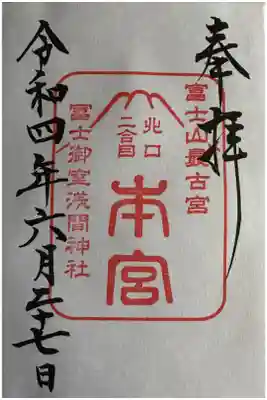 奉拝
富士山最古宮
北口
二合目
本宮
冨士御室浅間神社
令和四年六月二十七日